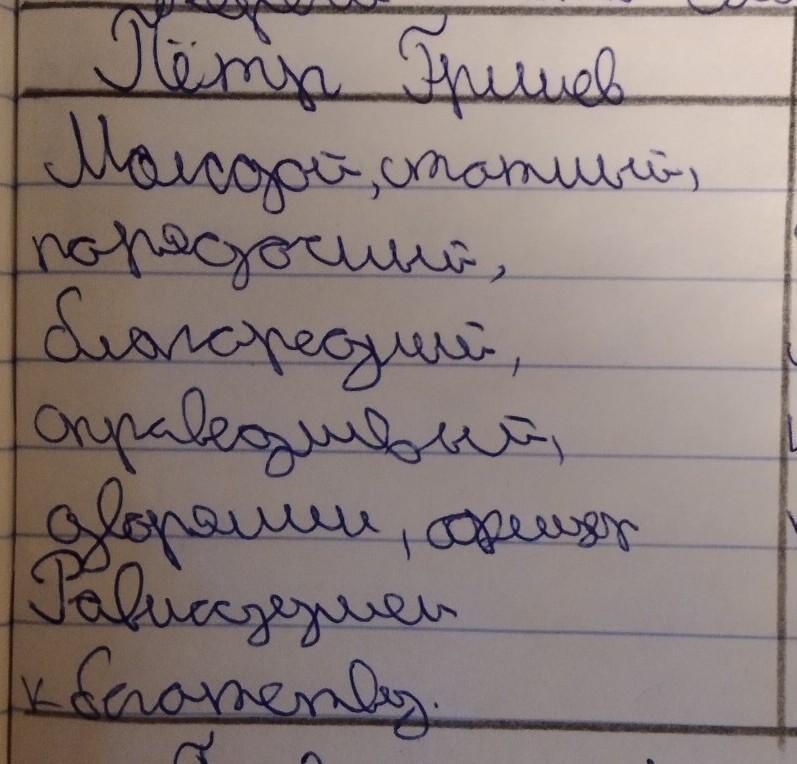 Пётр Гринев
Молодой, статный,
порядочный,
благородный,
справедливый,
дворянин, офицер
Равнодушен
к богатству.